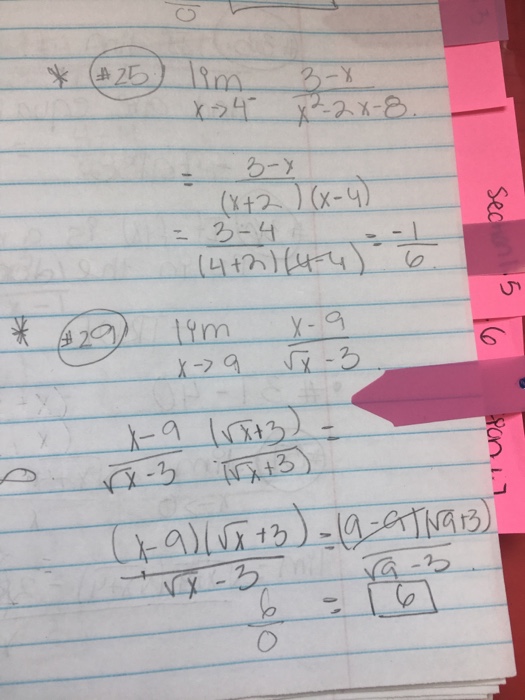 0
* #25 lim x→4⁻ (3-x)/(x²-2x-8).
= (3-x)/((x+2)(x-4))
= (3-4)/((4+2)(4-4)) = -1/6
* #29 lim x→9 (x-9)/(√x-3)
(x-9)/(√x-3) (√x+3)/(√x+3) =
((x-9)(√x+3))/(√x-3) = ((9-9)(√9+3))/(√9-3)
6/0 = 6
5
6
1.7